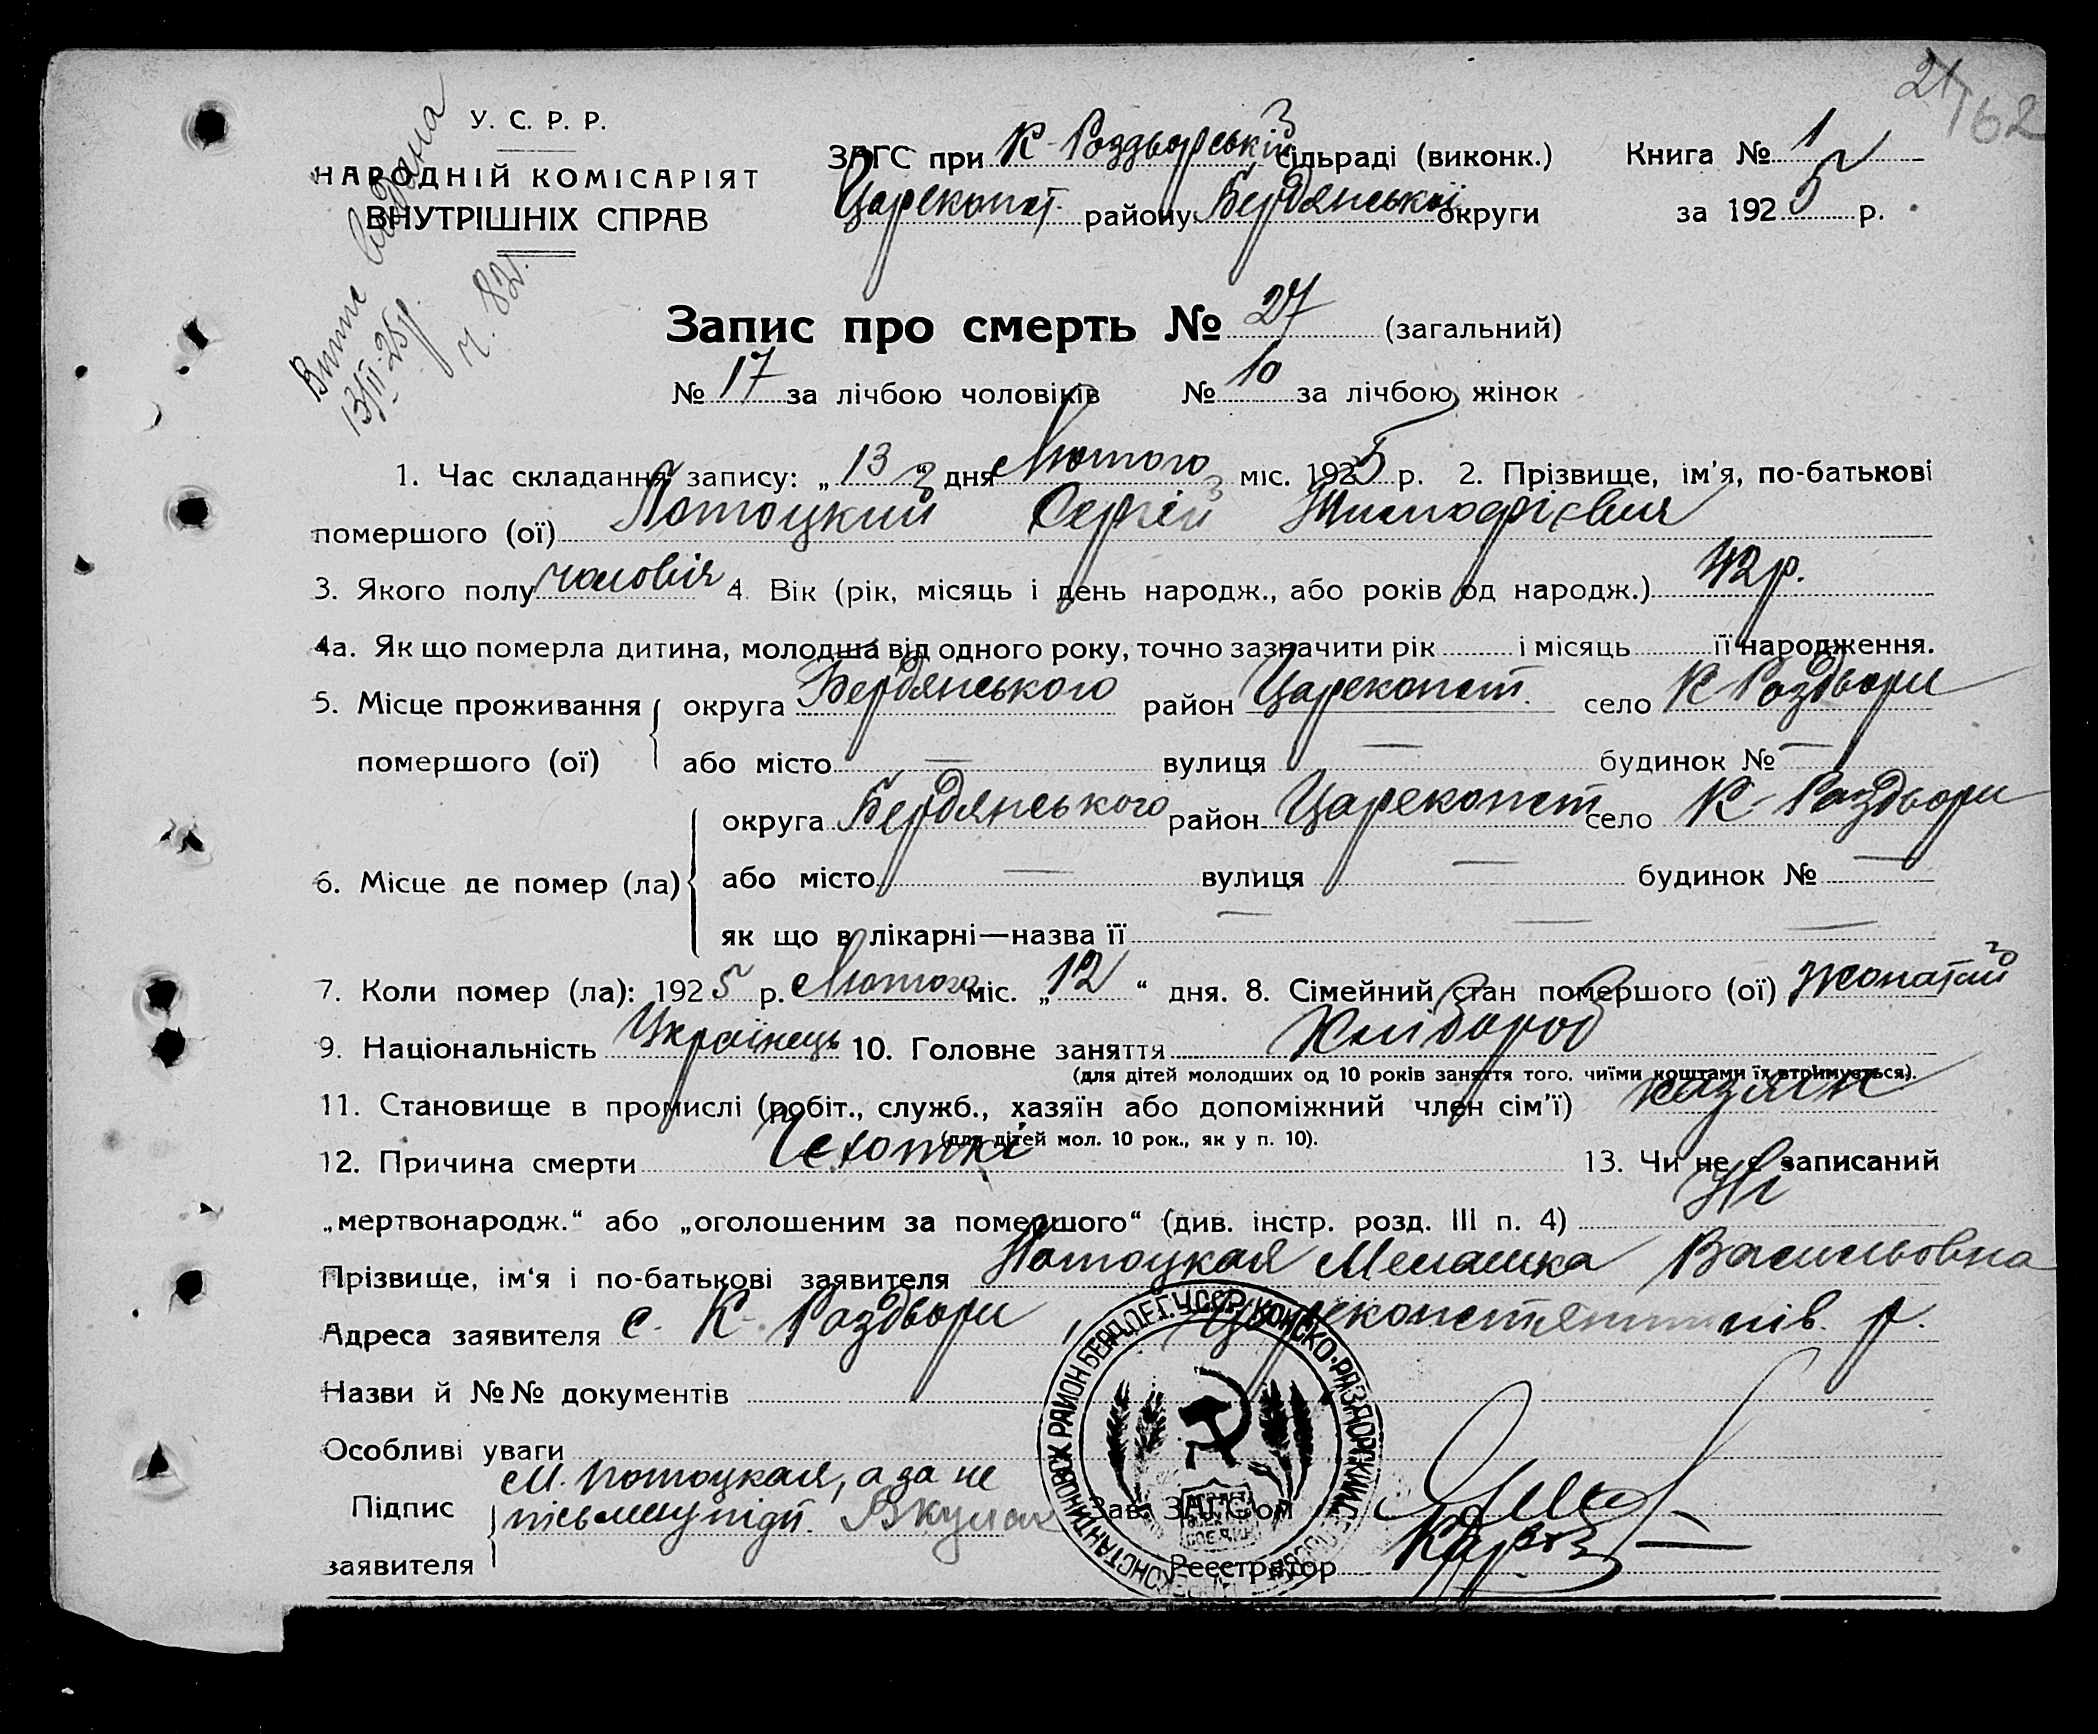 21
162
У. С. Р. Р.
НАРОДНІЙ КОМІСАРІЯТ
ВНУТРІШНІХ СПРАВ
Витяг видана
13/II-25 р.
ч. 82.
ЗАГС при К-Роздьорській сільраді (виконк.) Книга № 1
Цареконст. району Бердянської округи за 1925 р.
Запис про смерть № 27 (загальний)
№ 17 за лічбою чоловіків № 10 за лічбою жінок
1. Час складання запису: „ 13 “ дня Лютого міс. 1925 р. 2. Прізвище, ім'я, по-батькові
помершого (ої) Потоцкий Сергій Тимофієвич
3. Якого полу чоловіч 4. Вік (рік, місяць і день народж., або років од народж.) 42 р.
4а. Як що померла дитина, молодша від одного року, точно зазначити рік і місяць її народження.
5. Місце проживання округа Бердянського район Цареконст. село К Роздьори
помершого (ої) або місто — вулиця — будинок № —
округа Бердянського район Цареконст село К-Роздьори
6. Місце де помер (ла) або місто — вулиця — будинок № —
як що в лікарні—назва її — — —
7. Коли помер (ла): 1925 р. Лютого міс. „ 12 “ дня. 8. Сімейний стан помершого (ої) Жонатий
9. Національність Українець 10. Головне заняття Хлібороб
(для дітей молодших од 10 років заняття того, чиїми коштами їх втримується).
11. Становище в промислі (робіт., служб., хазяїн або допоміжний член сім'ї) хазяин
(для дітей мол. 10 рок., як у п. 10).
12. Причина смерти Чехоткі 13. Чи не є записаний
„мертвонародж.“ або „оголошеним за помершого“ (див. інстр. розд. III п. 4) Ні
Прізвище, ім'я і по-батькові заявителя Потоцкая Мелашка Васильовна
Адреса заявителя с. К-Роздьори, Цареконстянтинів. р.
Назви й №№ документів
Особливі уваги
Підпис М. Потоцкая, а за не
письмену підп.
заявителя
Зав. ЗАГС'ом
Реєстрятор